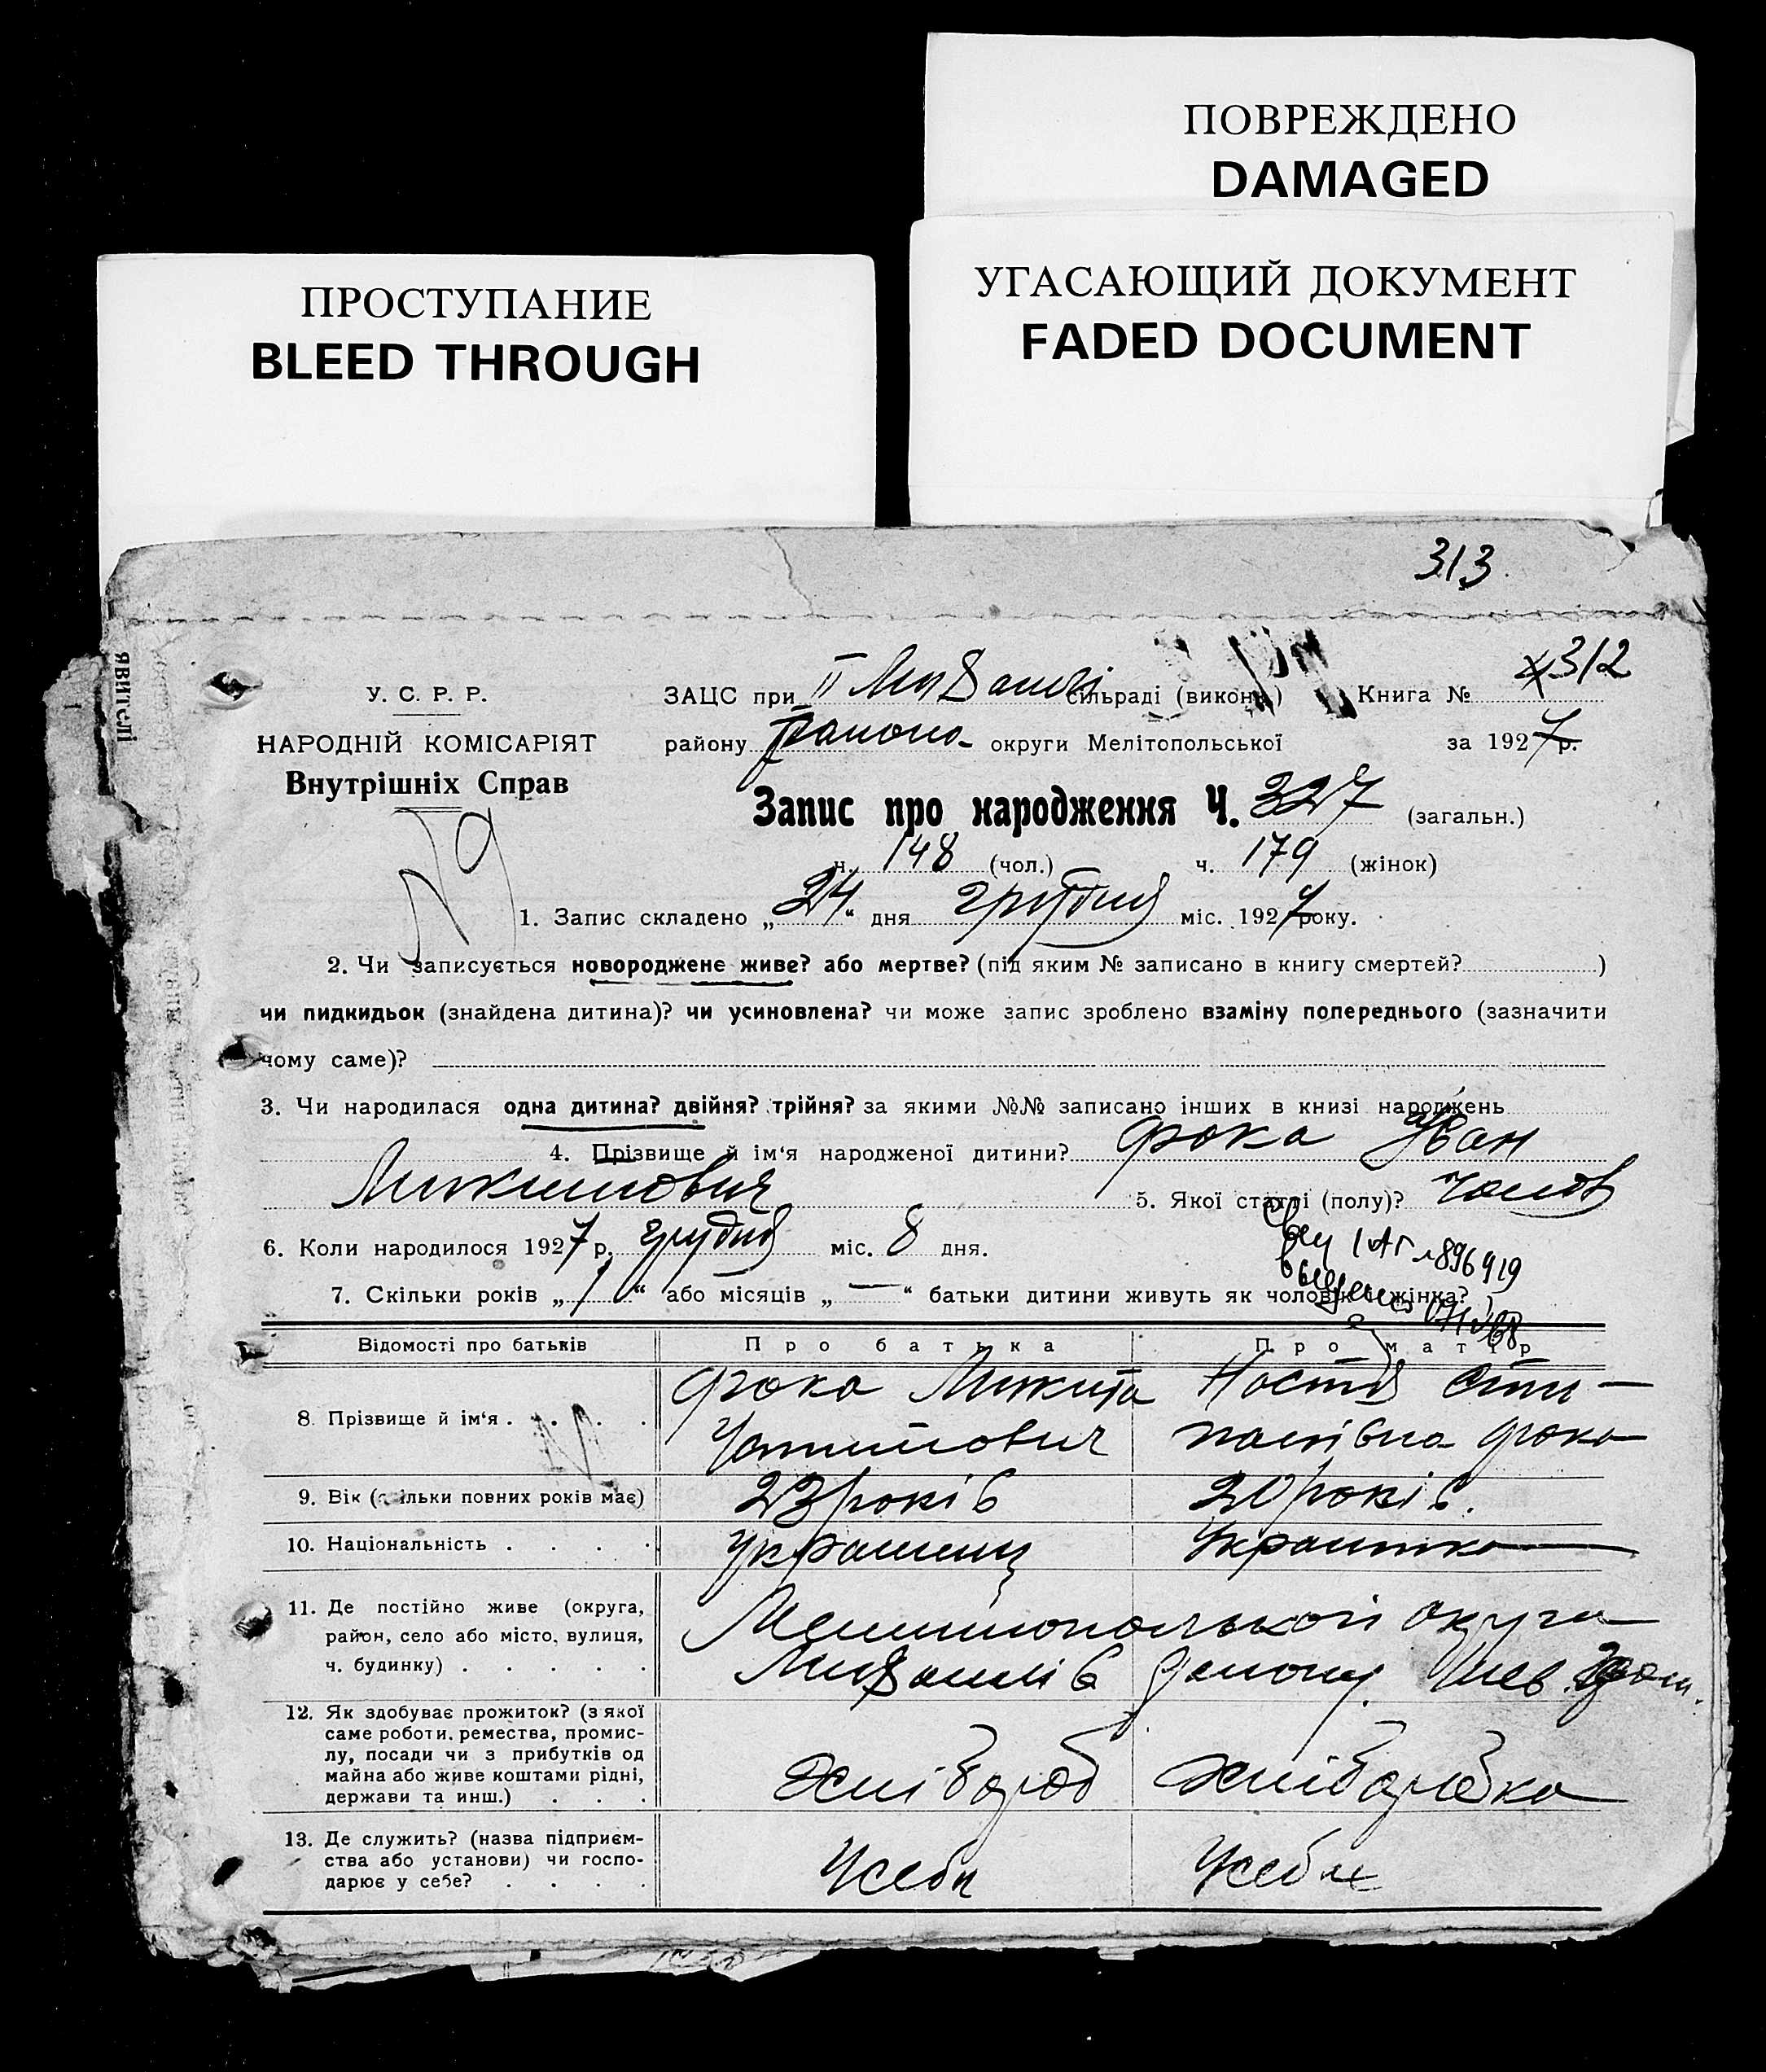 ПОВРЕЖДЕНО
DAMAGED
ПРОСТУПАНИЕ
BLEED THROUGH
УГАСАЮЩИЙ ДОКУМЕНТ
FADED DOCUMENT
313.
явителі
У. С. Р. Р.
НАРОДНІЙ КОМІСАРІЯТ
Внутрішніх Справ
ЗАЦС при II сільраді (виконк.) Книга № 312
району округи Мелітопольської за 1927 р.
Запис про народження Ч. 327 (загальн.)
ч. 148 (чол.) ч. 179 (жінок)
1. Запис складено „24“ дня грудня міс. 1927 року.
2. Чи записується новороджене живе? або мертве? (під яким № записано в книгу смертей? )
чи пидкидьок (знайдена дитина)? чи усиновлена? чи може запис зроблено взаміну попереднього (зазначити
чому саме)?
3. Чи народилася одна дитина? двійня? трійня? за якими №№ записано інших в книзі народжень
4. Прізвище й ім'я народженої дитини? Фока Іван
Микитович 5. Якої статрі (полу)? чолов
6. Коли народилося 1927 р. грудня міс. 8 дня.
7. Скільки років „1“ або місяців „—“ батьки дитини живуть як чоловік і жінка?
Відомості про батьків Про батька Про матір
8. Прізвище й ім'я . . . . Фока Микита Настя
Фока
9. Вік (скільки повних років має) 23 років 20 років.
10. Національність . . . . Українець Українка
11. Де постійно живе (округа,
район, село або місто, вулиця,
ч. будинку) . . . . . Мелітопольской округи
12. Як здобуває прожиток? (з якої
саме роботи, ремества, промис-
лу, посади чи з прибутків од
майна або живе коштами рідні,
держави та инш.) . . . Хлібороб Хліборобка
13. Де служить? (назва підприєм-
ства або установи) чи госпо-
дарює у себе? . . . . Усебя Усебя